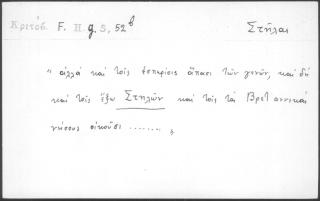 Κριτόβ. F. H. g. 3, 52ᵇ
Στῆλαι
" ἀλλὰ καὶ τοῖς ἑσπερίοις ἅπασι τῶν γενῶν, καὶ δὴ
καὶ τοῖς ἔξω Στηλῶν καὶ τοῖς τὰς Βρεταννικὰς
νήσους οἰκοῦσι ........ "